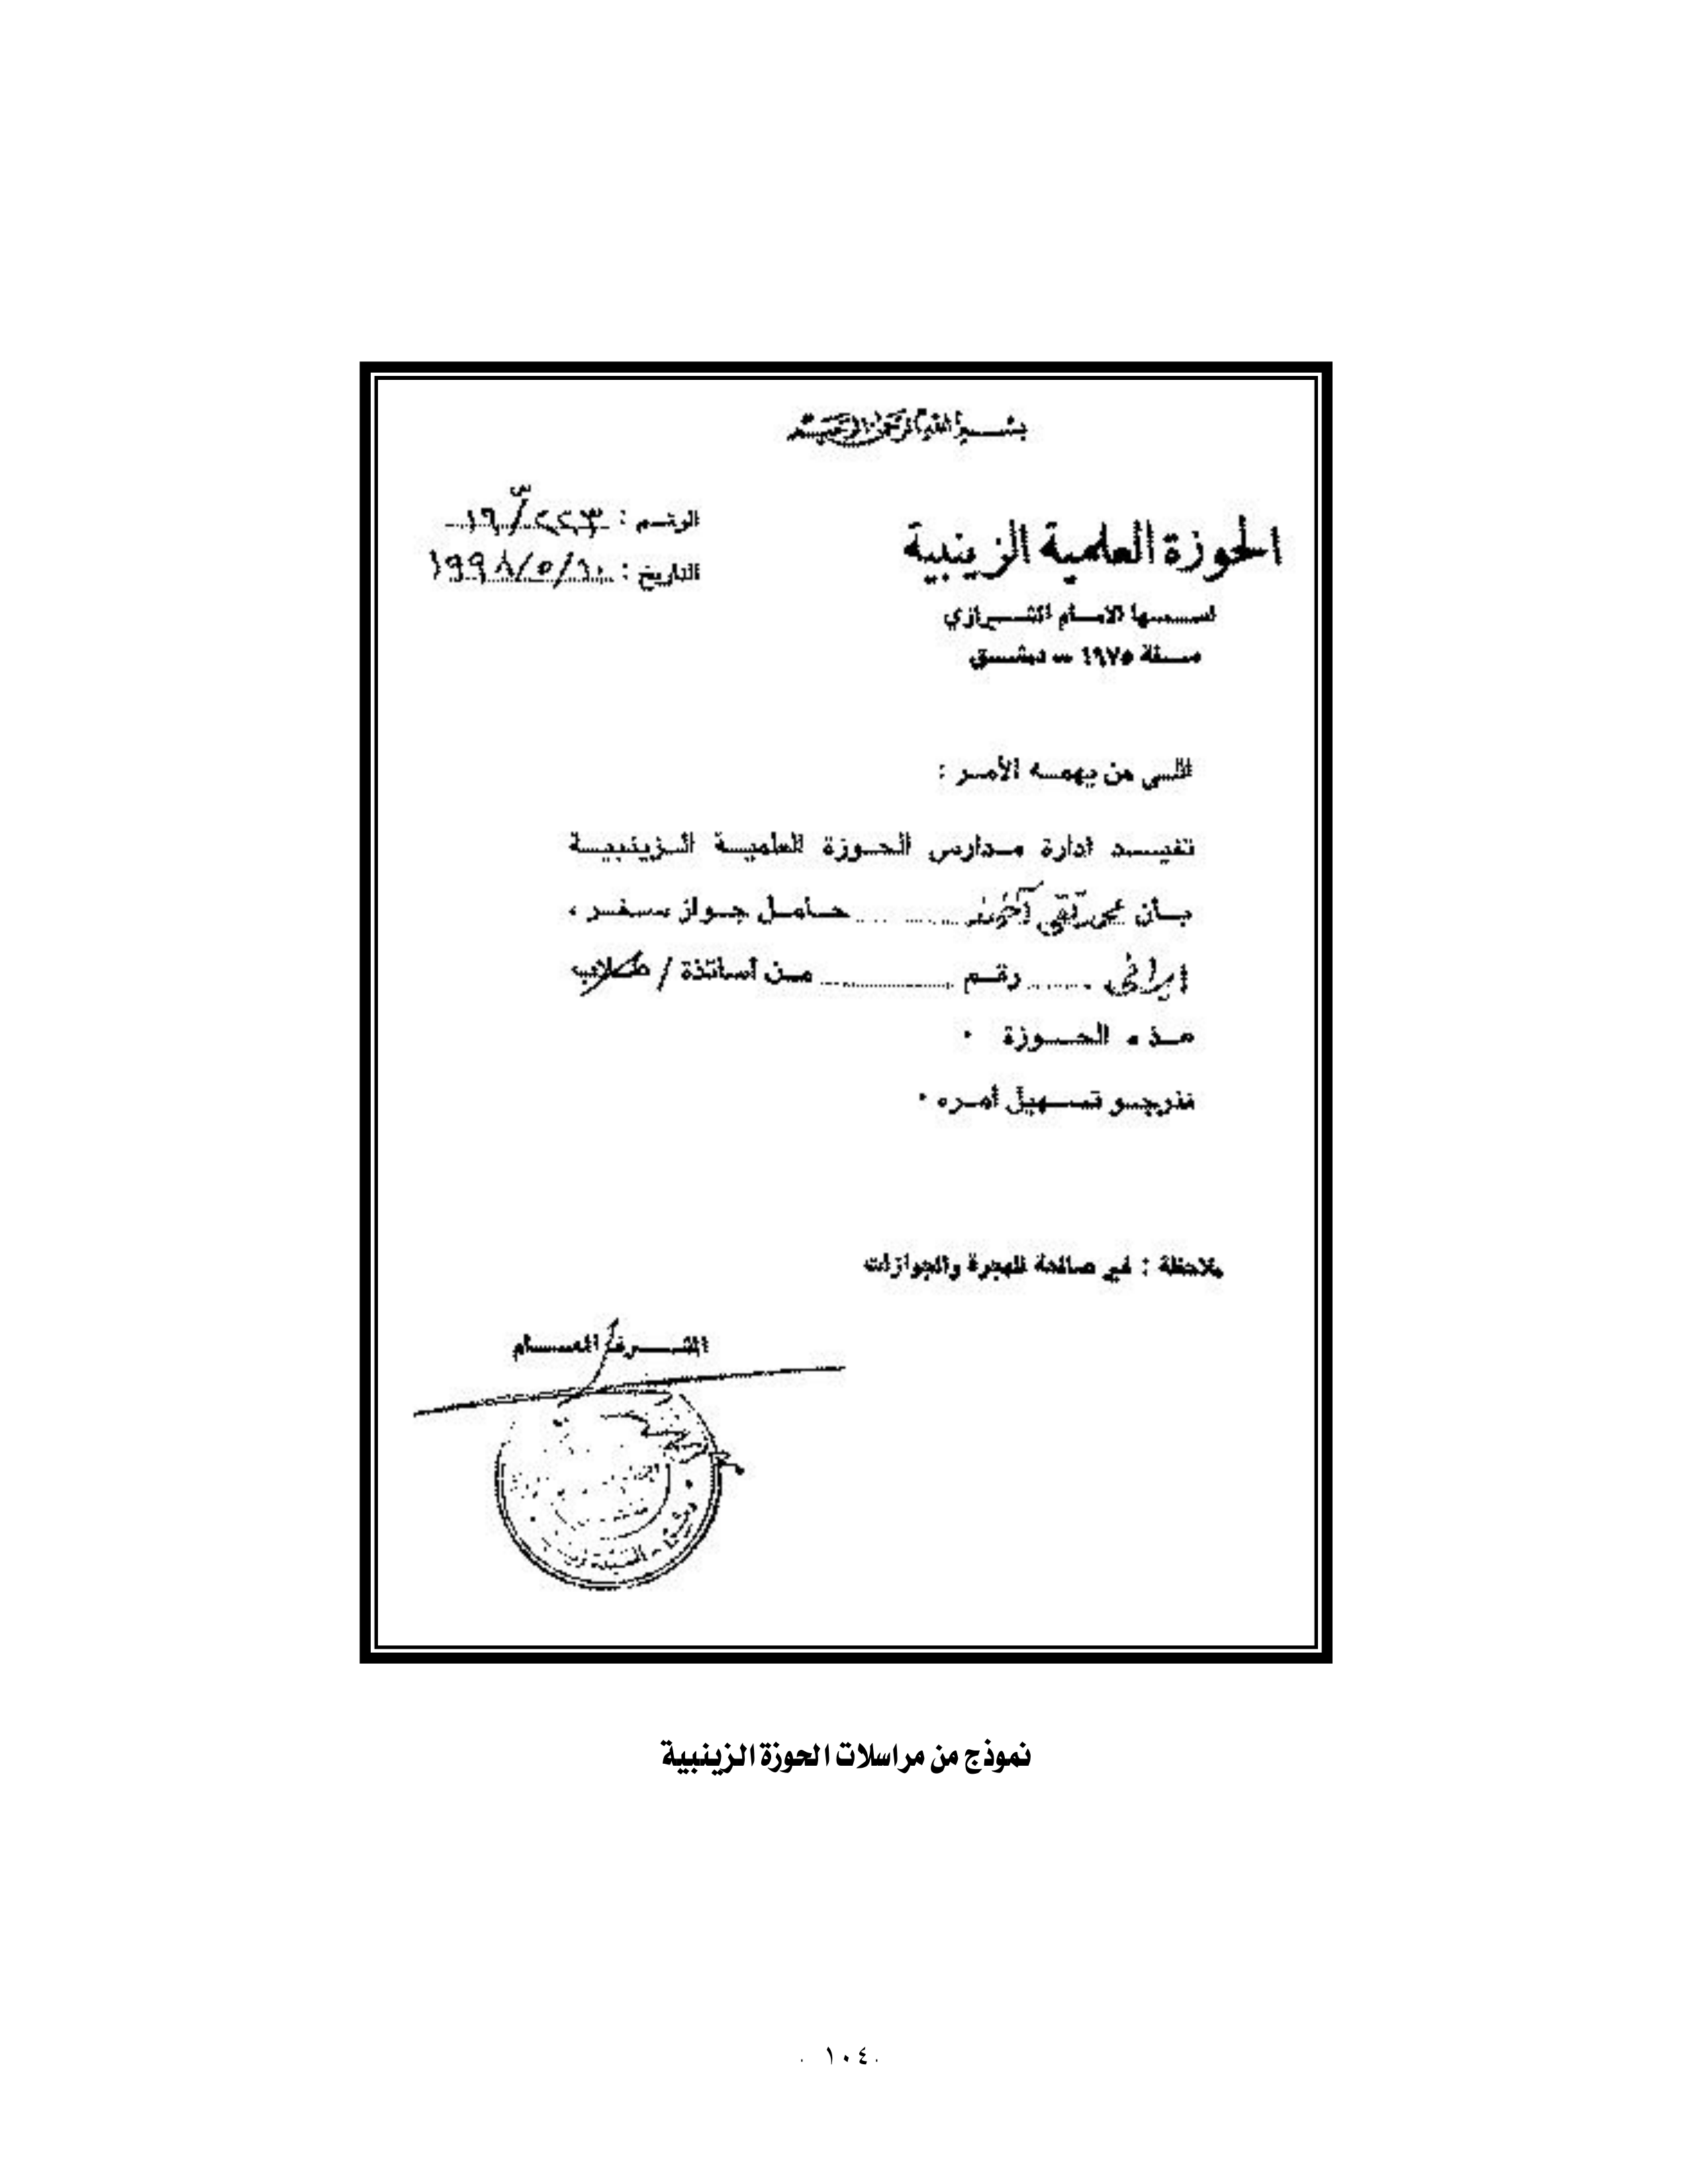 بسم الله الرحمن الرحيم
الحوزة العلمية الزينبية
اسسها الامام الشيرازي
سنة ١٩٧٥ - دمشق
الرقم : ٢٢٣/س/١٦
التاريخ : ١٩٩٨/٥/١٠
الى من يهمه الأمر :
تفيد ادارة مدارس الحوزة العلمية الزينبية
بان محمد تقي حامل جواز سفر ،
ايراني رقم من أساتذة / طلاب
هذه الحوزة .
فنرجو تسهيل أمره .
ملاحظة : في صالحة للهجرة والجوازات
المشرف العام
نموذج من مراسلات الحوزة الزينبية
١٠٤